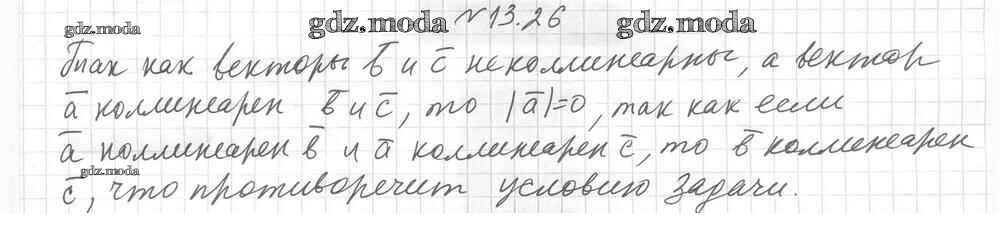 gdz.moda gdz.moda № 13.26 gdz.moda gdz.moda
Так как векторы b̅ и c̅ неколлинеарны, а вектор
a̅ коллинеарен b̅ и c̅, то |a̅|=0, так как если
a̅ коллинеарен b̅ и a̅ коллинеарен c̅, то b̅ коллинеарен
gdz.moda
c̅, что противоречит условию задачи.